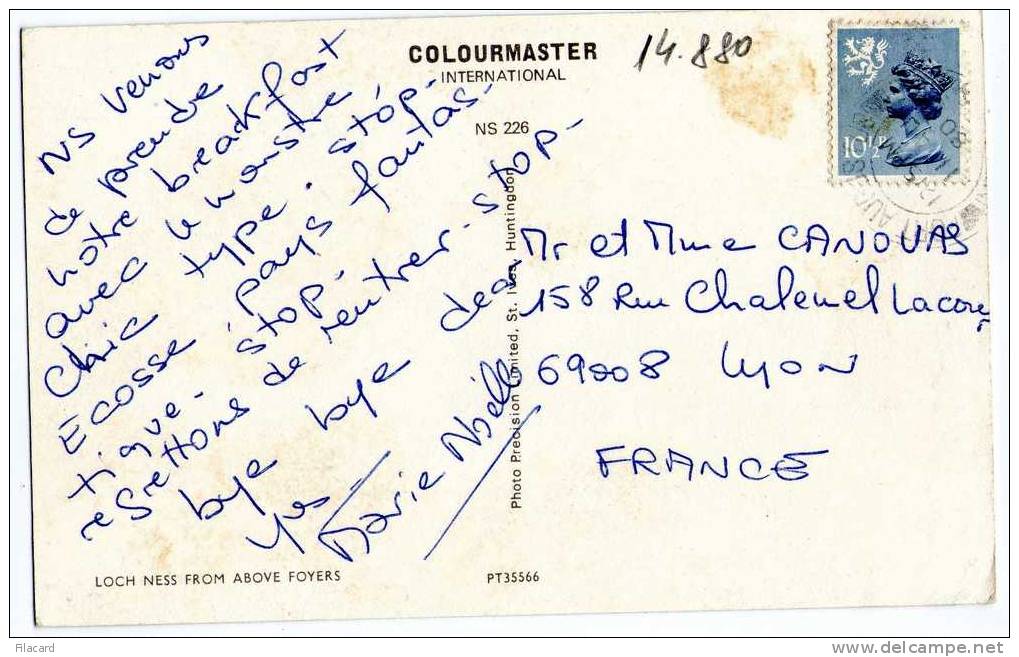 COLOURMASTER
INTERNATIONAL
14.880
NS 226
10½P
NS venons
de prendre
notre breakfast
avec le monstre,
Chic type. stop.
Ecosse : pays fantas-
tique. stop.
regrettons de rentrer. stop.
bye bye dear
Yves
Marie Noëlle
Photo Precision Limited, St. Ives, Huntingdon
Mr et Mme CANOVAS
158 Rue Challemel Lacour
69008 Lyon
FRANCE
LOCH NESS FROM ABOVE FOYERS
PT35566
Filacard
www.delcampe.net